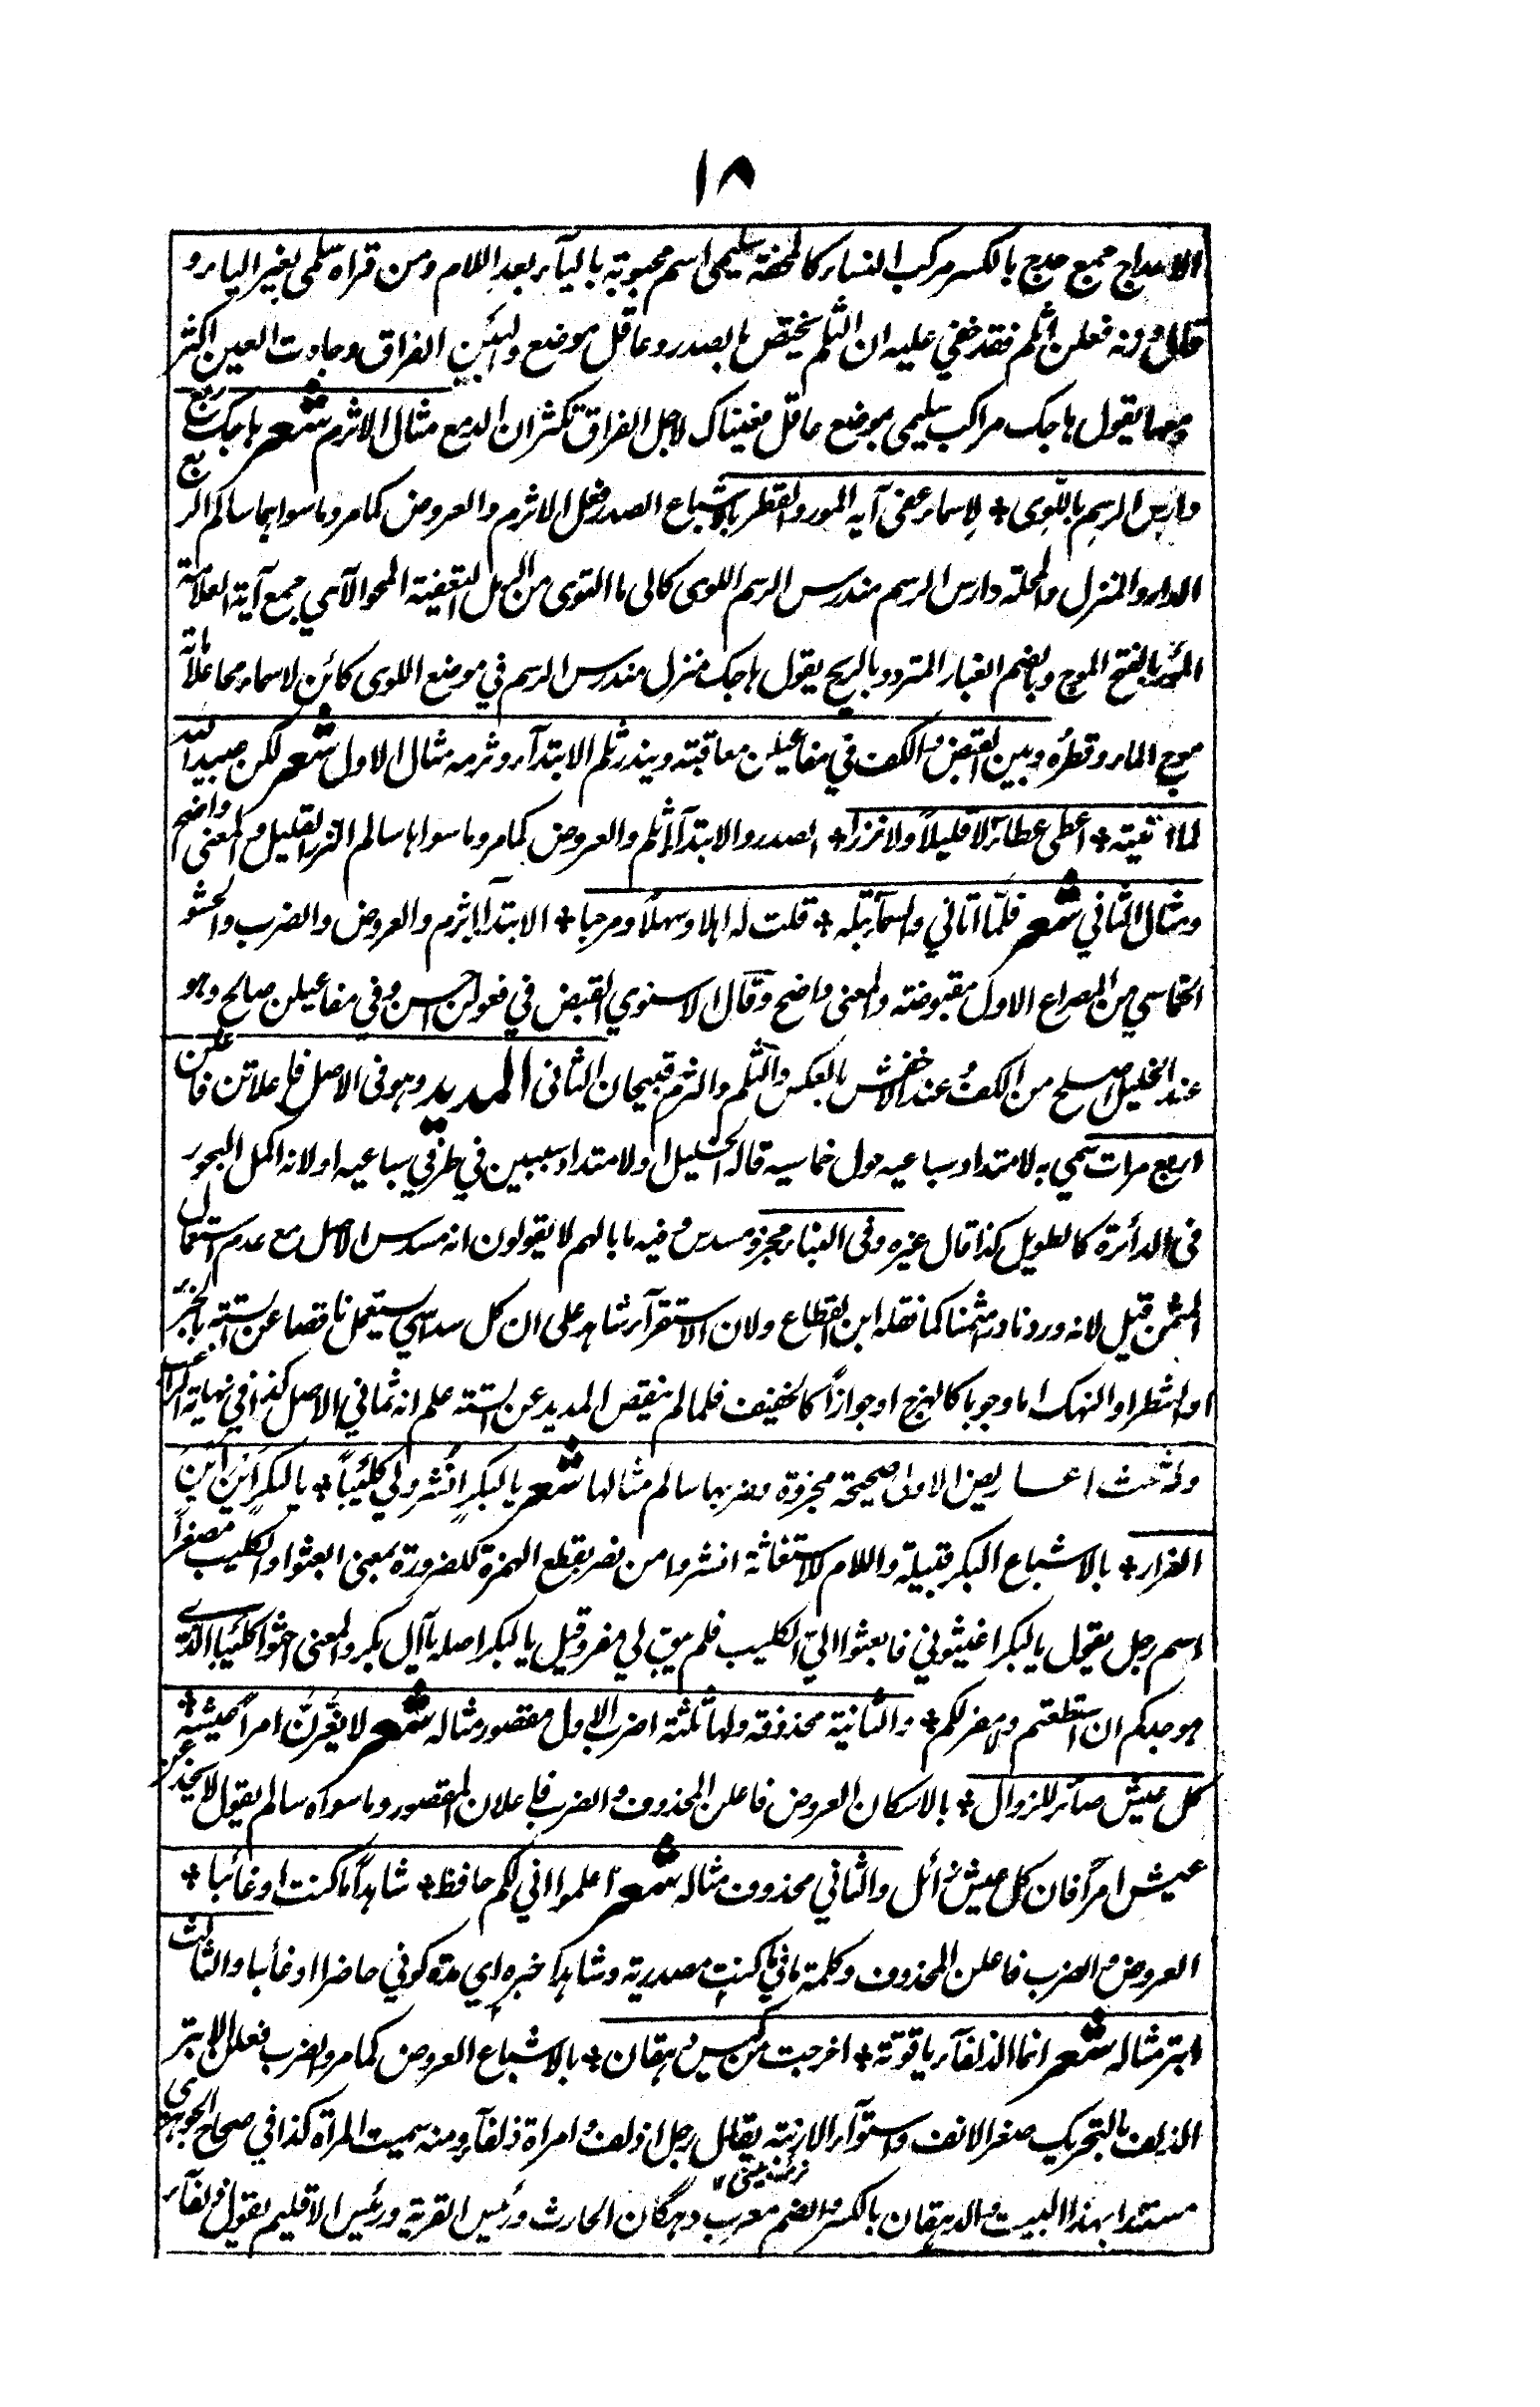 ١٨
الاحداج جمع حدج بالكسر مركب النساء كالمحفة سليمى اسم محبوبة بالياء بعد اللام ومن قراه سلمى بغير الياء و
قال وزنه فعلن اثلم فقد خفي عليه ان الثلم يختص بالصدر وعاقل موضع والبين الفراق وجادت العين اكثر
دمعها يقول هاجك مراكب سليمى بموضع عاقل فعيناك لاجل الفراق تكثران الدمع مثال الاثرم شعر هاجك ربع
دارس الرسم باللوى * لاسماء عفى آيه المور والقطر بالاشباع الصدر فعل الاثرم والعروض كما مر وما سواهما سالم الربع
الدار والمنزل والمحلة دارس الرسم مندرس الرسم اللوى كالى ما التوى من الرمل التعفية المحو الآي جمع آية العلامة
المور بالفتح الموج وبالضم الغبار المتردد بالريح يقول هاجك منزل مندرس الرسم في موضع اللوى كائن لاسماء محا علاماته
موج الماء وقطره وبين القبض والكف في مفاعيلن معاقبة ويندر ثلم الابتداء وثرمه مثال الاول شعر لكن عبيد الله
لما اتيته * اعطى عطاء لا قليلاً ولا نزرا * الصدر والابتداء اثلم والعروض كما مر وما سواها سالم النزر القليل والمعنى واضح
ومثال الثاني شعر فلما اتاني والسماء تبله * قلت له اهلا وسهلاً ومرحبا * الابتداء اثرم والعروض والضرب والحشو
الخماسي من المصراع الاول مقبوضة والمعنى واضح وقال الاسنوي القبض في فعولن حسن وفي مفاعيلن صالح وهو
عند الخليل اصلح من الكف وعند الاخفش بالعكس والثلم والثرم قبيحان الثاني المديد وهو في الاصل فاعلاتن فاعلن
اربع مرات سمي به لامتداد سباعيه حول خماسيه قاله الخليل او لامتداد سببين في طرفي سباعيه او لانه اكمل البحور
في الدائرة كالطويل كذا قال غيره وفي البناء مجزو مسدس وفيه ما بالهم لا يقولون انه مسدس الاصل مع عدم استعمال
المثمن قيل لانه ورد نادرا مثمنا كما نقله ابن القطاع ولان الاستقراء شاهد على ان كل سداسي يستعمل ناقصا عن الستة بالجزء
او الشطر او النهك اما وجوبا كالهزج او جوازاً كالخفيف فلما لم ينقص المديد عن الستة علم انه ثماني الاصل كذا في نهاية
وله ثلث اعاريض الاولى صحيحة مجزوة وضربها سالم مثالها شعر يا لبكرٍ انشروا لي كليباً * يا لبكرٍ اين اين
الفرار * بالاشباع البكر قبيلة واللام للاستغاثة انشروا من نصر بقطع الهمزة للضرورة بمعنى ابعثوا والكليب مصغراً
اسم رجل يقول يا لبكر اغيثوني فابعثوا الي الكليب فلم يبق لي مفر وقيل يا لبكر اصله يا آل بكر والمعنى كليبا الذي
هو جدكم ان استطعتم ولا مفر لكم * والثانية محذوفة ولها ثلثة اضرب الاول مقصور مثاله شعر لا يغرنَّ امرأً عيشه *
كل عيش صائر للزوال * بالاسكان العروض فاعلن المحذوف والضرب فاعلان المقصور وما سواه سالم يقول لا يخدعن
عيش امرأً فان كل عيش زائل والثاني محذوف مثاله شعر اعلموا اني لكم حافظ * شاهداً ما كنت او غائبا *
العروض والضرب فاعلن المحذوف وكلمة ما في ما كنت مصدرية وشاهدا خبره اي مدة كوني حاضرا او غائبا والثالث
ابتر مثاله شعر انما الذلفاء ياقوتة * اخرجت من كيس دهقان * بالاشباع العروض كما مر والضرب فعلن الابتر
الذلف بالتحريك صغر الانف واستواء الارنبة يقال رجل اذلف وامراة ذلفاء ومنه سميت المراة كذا في صحاح الجوهري
مستندا بهذا البيت والدهقان بالكسر والضم معرب دهگان الحارث ورئيس القرية ورئيس الاقليم يقول ذلفاء